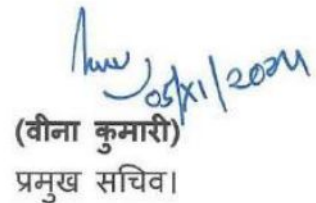 05/XI/2024
(वीना कुमारी)
प्रमुख सचिव।